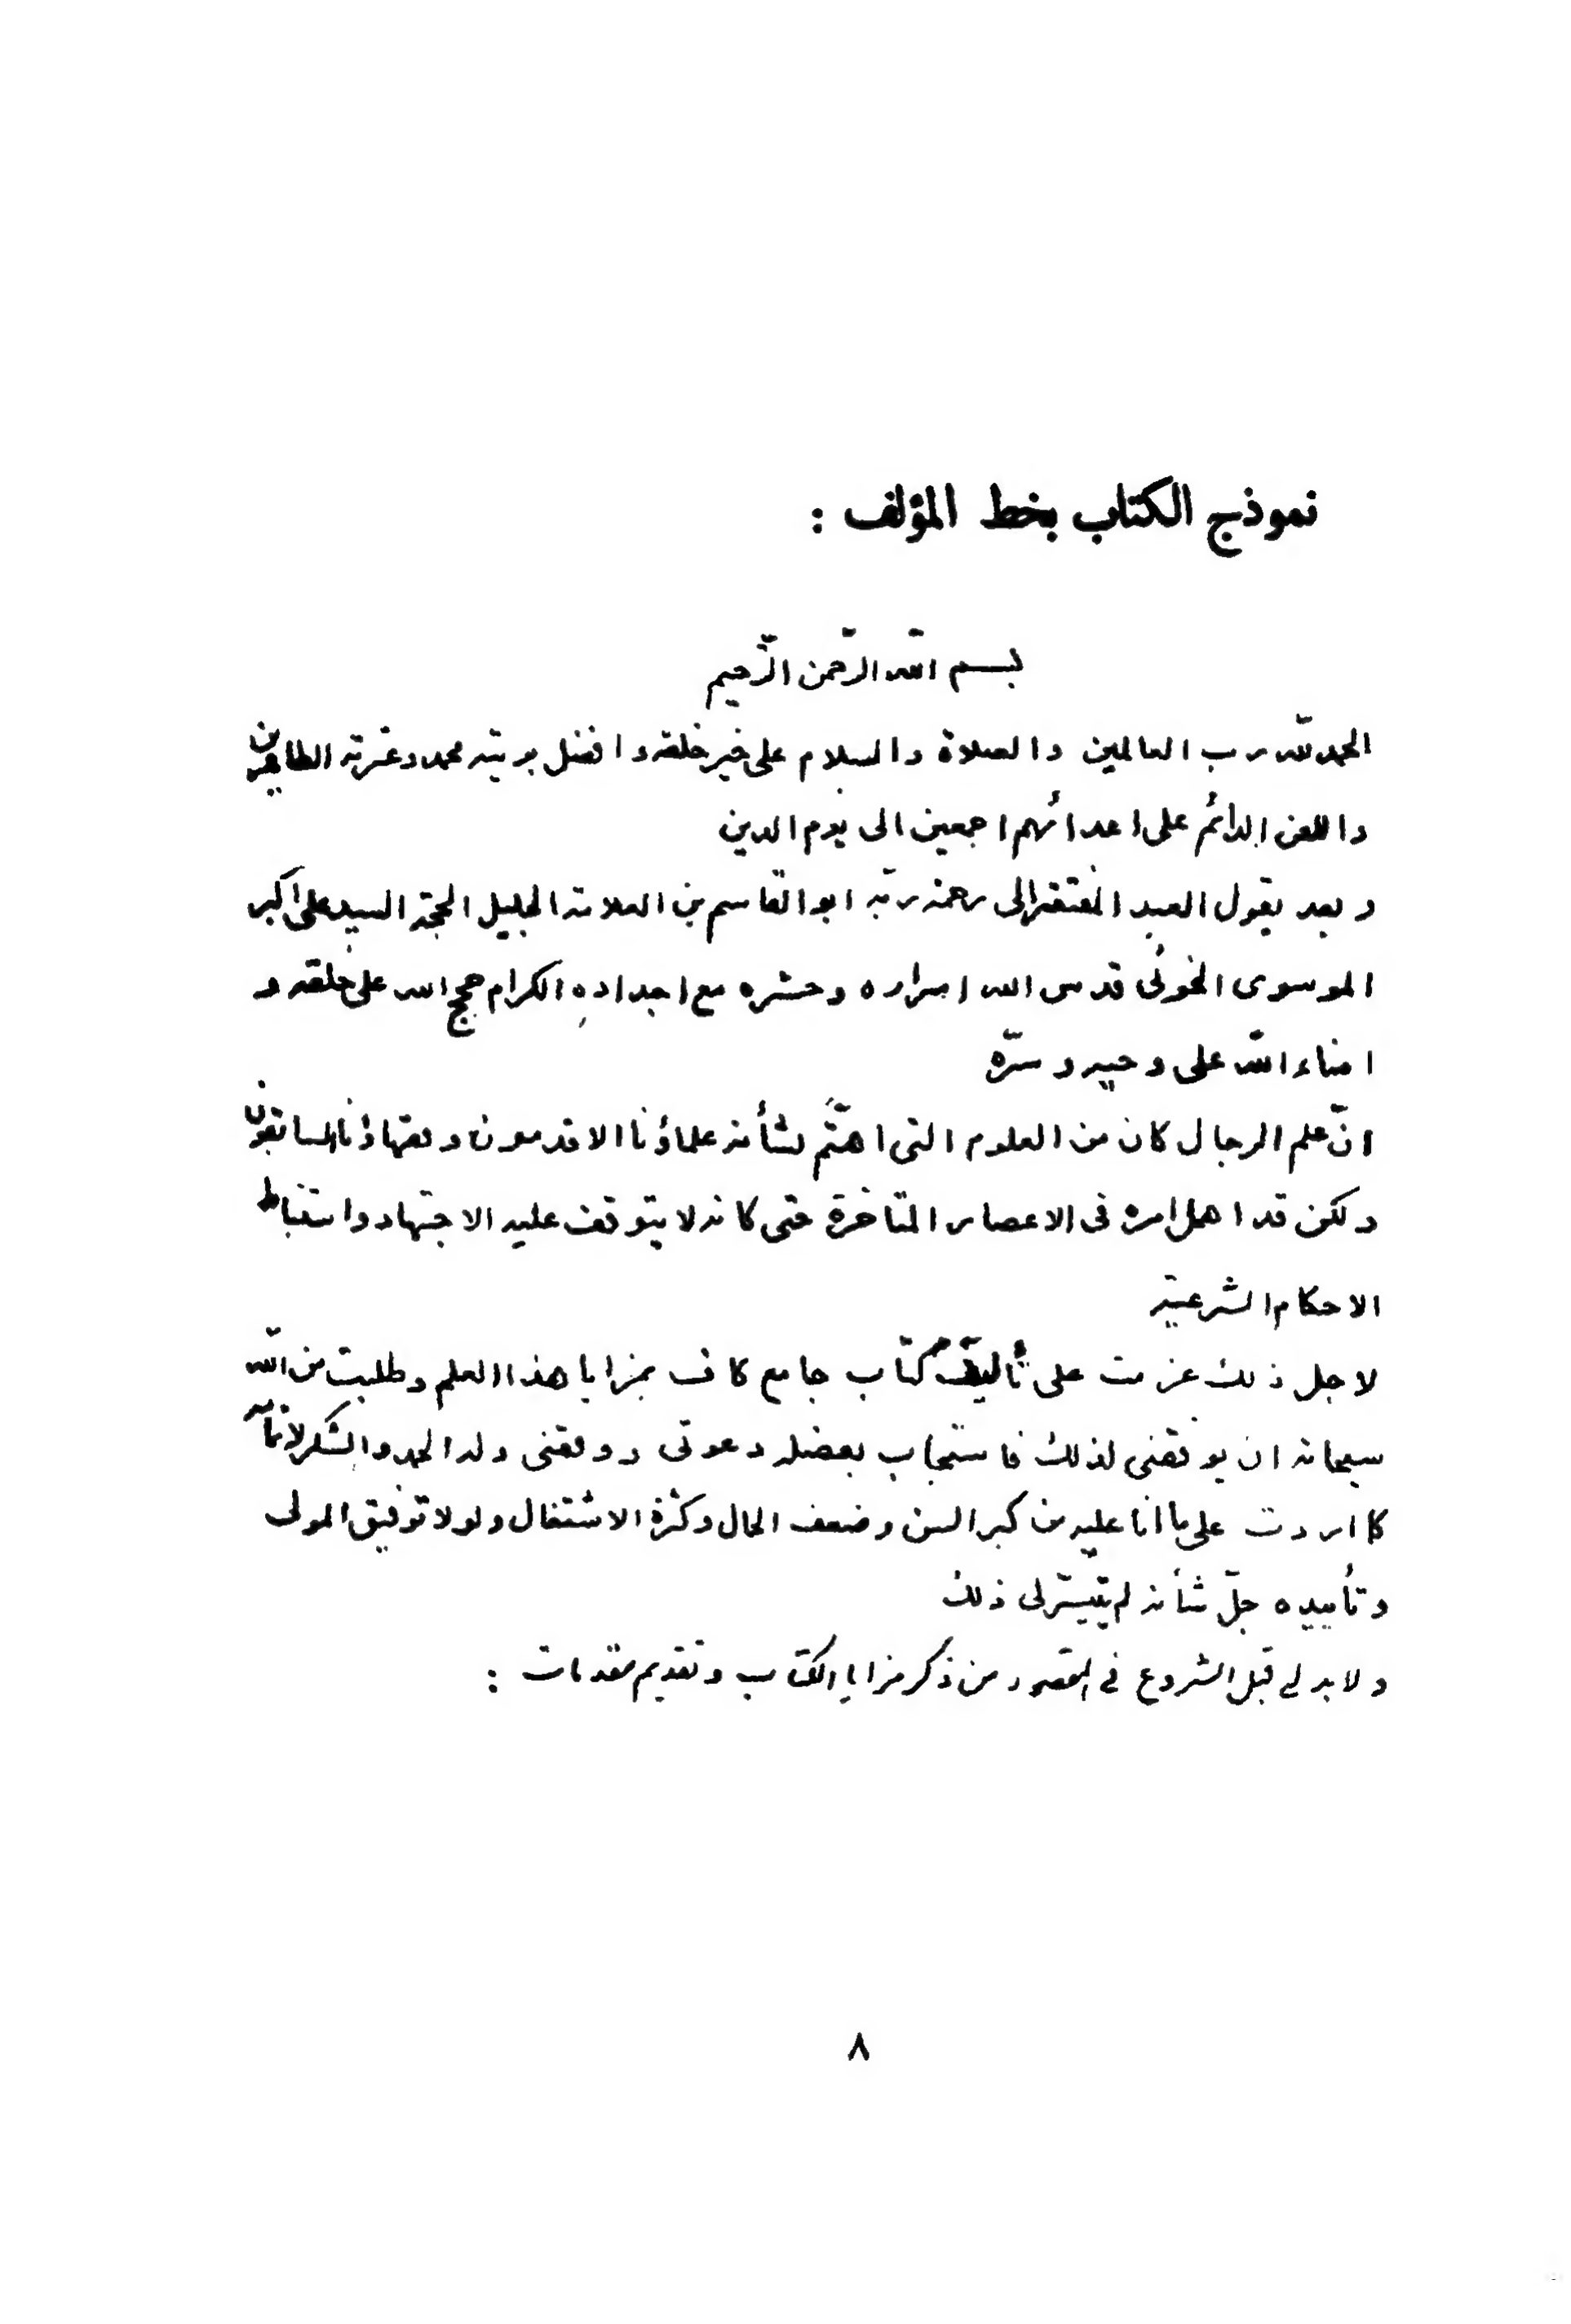 نموذج الكتاب بخط المؤلف :
بسم الله الرّحمن الرّحيم
الحمد للّه رب العالمين والصلاة والسلام على خير خلقه وافضل بريته محمد وعترته الطاهرين
واللعن الدائم على اعدائهم اجمعين الى يوم الدين
وبعد يقول العبد المفتقر الى رحمة ربّه ابو القاسم بن العلامة الجليل الحجة السيد على اكبر
الموسوى الخوئى قدس الله اسراره وحشره مع اجداده الكرام حجج الله على خلقه و
امناء الله على وحيه وسرّه
انّ علم الرجال كان من العلوم التى اهتمّ بشأنه علماؤنا الاقدمون وفقهاؤنا السابقون
ولكن قد اهمل امره فى الاعصار المتاخرة حتى كانه لا يتوقف عليه الاجتهاد واستنباط
الاحكام الشرعية
لاجل ذلك عزمت على تأليف كتاب جامع كاف بمزايا هذا العلم وطلبت من اللّه
سبحانه ان يوفقنى لذلك فاستجاب بفضله دعوتى ووفقنى وله الحمد والشكر لاتمامه
كما اردت على ما انا عليه من كبر السن وضعف الحال وكثرة الاشتغال ولولا توفيق المولى
وتأييده جلّ شأنه لم يتيسّر لى ذلك
ولا بد لى قبل الشروع فى المقصود من ذكر مزايا الكتاب وتقديم مقدمات :
٨